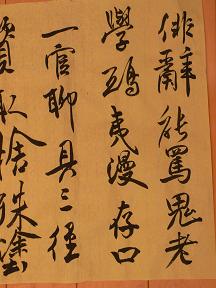 俳辭能罵鬼老
學鴟夷漫存口
一官聊具三徑
資取捨殊塗